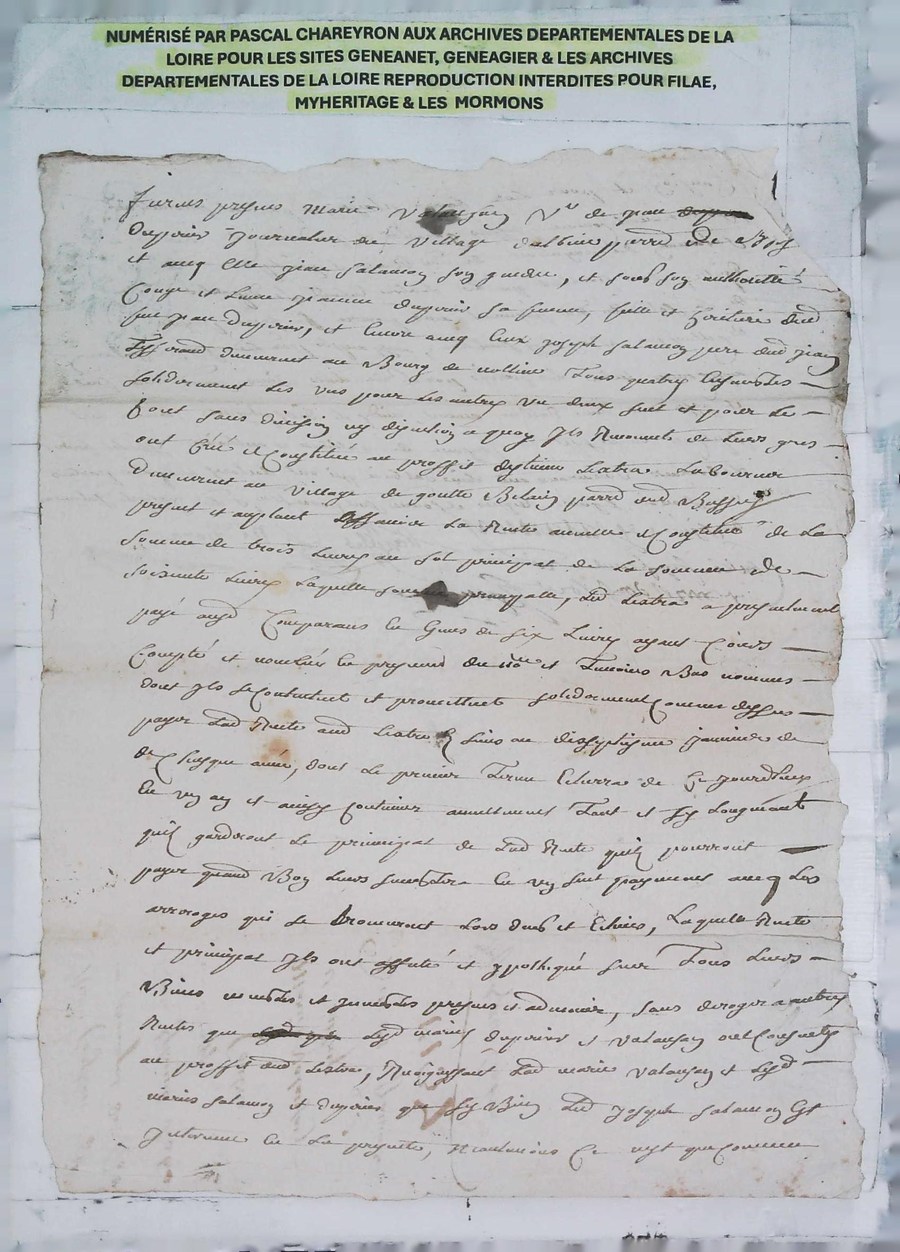 NUMÉRISÉ PAR PASCAL CHAREYRON AUX ARCHIVES DEPARTEMENTALES DE LA
LOIRE POUR LES SITES GENEANET, GENEAGIER & LES ARCHIVES
DEPARTEMENTALES DE LA LOIRE REPRODUCTION INTERDITES POUR FILAE,
MYHERITAGE & LES MORMONS
furent presens Marie Valansan Vve de jean
Duperin journalier du Village
et avecq elle jean salamon son gendre, et soubs son authorité
Conge et Licence jeanne duperin sa femme, fille et heritiere dud
feu jean Duperin, et encore avecq eux joseph salamon pere dud jean
Tisserand demeurant au Bourg de nollieu Tous quatres ensembles
solidairement Les uns pour Les autres un deux seul et pour Le
tout sans division ny discution a quoy ils Renoncent de Leurs gres
ont Créé et Constitué au proffit destienne Liatra Laboureur
Demeurant au Village de goutte Belain parr. dud Bussy
present et acceptant La Rente annuelle et Constituée de La
somme de trois Livres au sol principal de La somme de
soixante Livres Laquelle somme principalle, Led Liatra a presentement
payé ausd Comparans en Ecus de six Livres ayant Cours
Compté et nombrés en presence du nore et Temoins Bas nommés
dont ils se Contentent et promettent solidairement Comme dessus
payer Lad Rente aud Liatra & siens au dixseptieme janvier de
Chasque année, dont Le premier Terme Echerra de Ce jourdhuy
En un an et ainsy Continuer annuellement Tant et sy Longuement
quils garderont Le principal de Lad Rente quils pourront
payer quand Bon Leurs semblera En un seul payement avecq Les
arrerages qui se trouveront Lors deubs et Echeus, Laquelle Rente
et principal ils ont affecté et ypothequé sur Tous Leurs
Biens meubles et immeubles presens et advenir, sans deroger a autres
Rentes que Lesd mariés duperin et Valansan ont Constitués
au proffit dud Liatra, Lad marie Valansan et Lesd
mariés salamon et duperin que sy Bien Led joseph salamon Est
intervenu En La presente, Neantmoins Ce nest que Comme